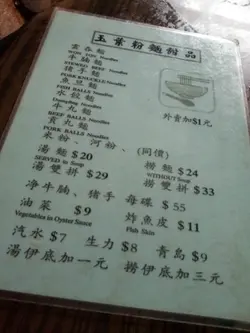 玉葉粉麵餠品
雲吞麵
WON TON Noodles
牛腩麵
STEWED BEEF Noodles
豬手麵
PORK KNUCKLE Noodles
魚旦麵
FISH BALLS Noodles
水餃麵
Dumpling Noodles
牛丸麵
BEEF BALLS Noodles
貢丸麵
PORK BALLS Noodles
外賣加$1元
米粉、河粉、(同價)
湯麵 $20 撈麵 $24
SERVED in Soup WITHOUT Soup
湯雙拼 $29 撈雙拼 $33
净牛腩、豬手 每碟 $55
油菜 $9 炸魚皮 $11
Vegetables in Oyster Sauce Fish Skin
汽水 $7 生力 $8 青島 $9
湯伊底加一元 撈伊底加三元